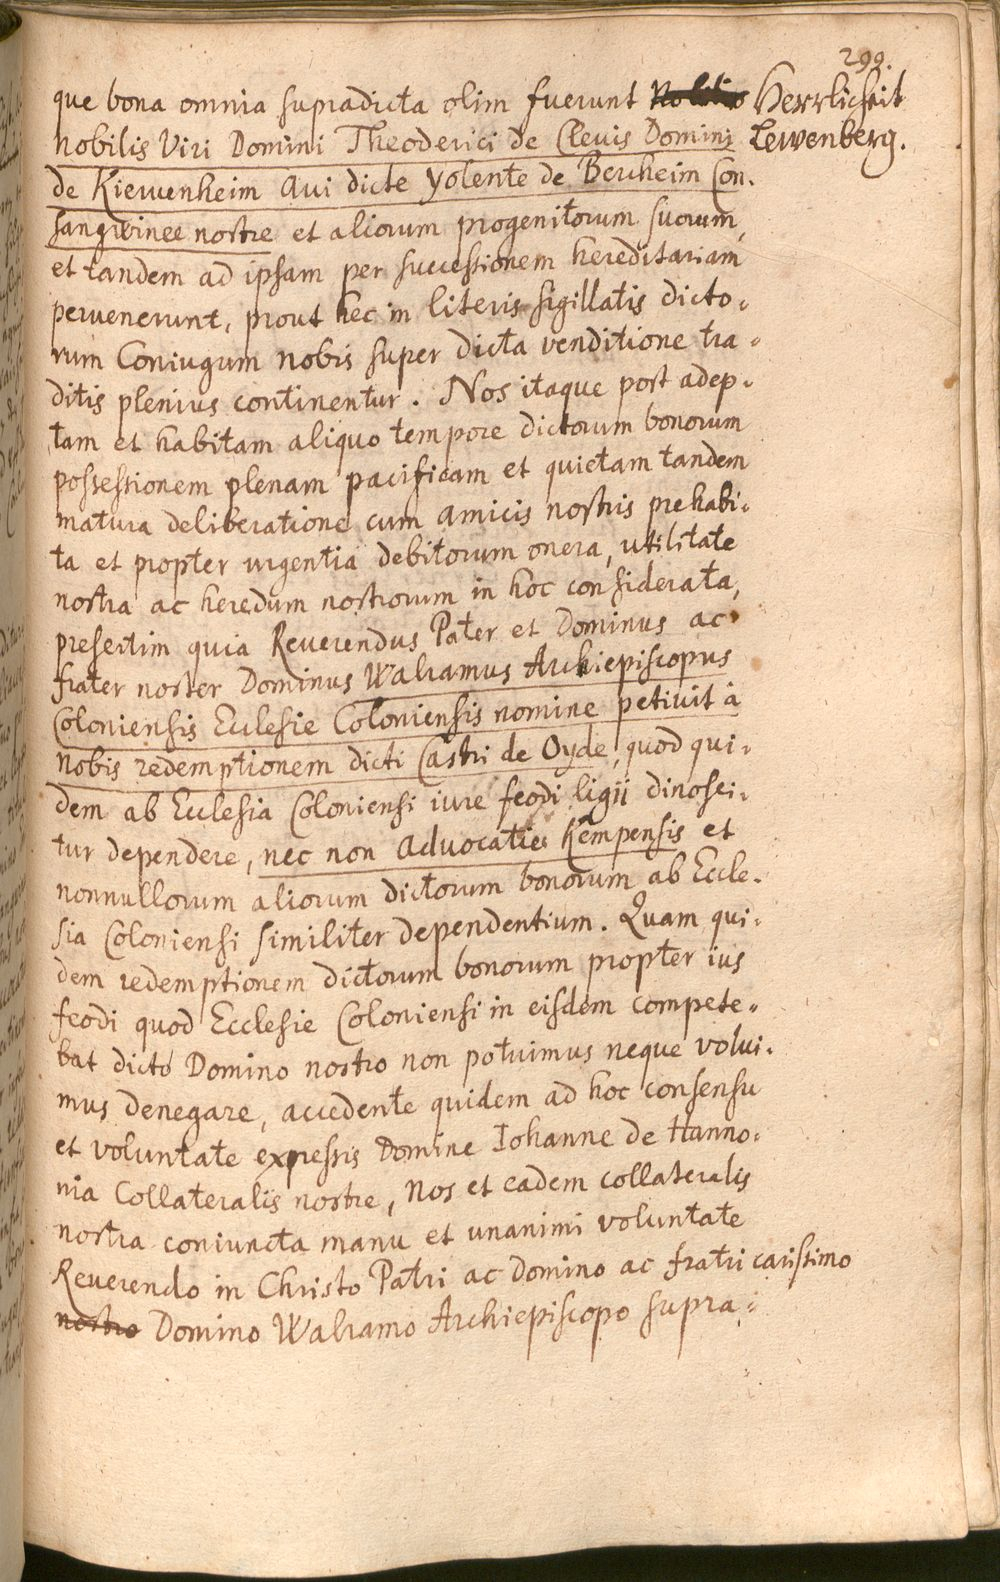 299.
Herrlicheit
Lewenberg.
que bona omnia supradicta olim fuerunt
nobilis Viri Domini Theoderici de Cleuis Domini
de Kierwenheim Aui dicte Yolente de Berheim Con-
sangwinee nostre et aliorum progenitorum suorum,
et tandem ad ipsam per successionem hereditariam
peruenerunt, prout hec in literis sigillatis dicto-
rum Coniugum nobis super dicta venditione tra-
ditis plenius continentur. Nos itaque post adep-
tam et habitam aliquo tempore dictorum bonorum
possessionem plenam pacificam et quietam tandem
matura deliberatione cum amicis nostris prehabi-
ta et propter urgentia debitorum onera, utilitate
nostra ac heredum nostrorum in hoc considerata,
presertim quia Reuerendus Pater et Dominus ac
frater noster Dominus Walramus Archiepiscopus
Coloniensis Ecclesie Coloniensis nomine petiuit à
nobis redemptionem dicti Castri de Oyde, quod qui-
dem ab Ecclesia Coloniensi iure feodi ligii dinosci-
tur dependere, nec non Aduocatie Kempensis et
nonnullorum aliorum dictorum bonorum ab Eccle-
sia Coloniensi similiter dependentium. Quam qui-
dem redemptionem dictorum bonorum propter ius
feodi quod Ecclesie Coloniensi in eisdem compete-
bat dicto Domino nostro non potuimus neque volui-
mus denegare, accedente quidem ad hoc consensu
et voluntate expressis Domine Iohanne de Hanno-
nia Collateralis nostre, Nos et eadem collateralis
nostra coniuncta manu et unanimi voluntate
Reuerendo in Christo Patri ac Domino ac fratri carissimo
nostro Domino Walramo Archiepiscopo supra-